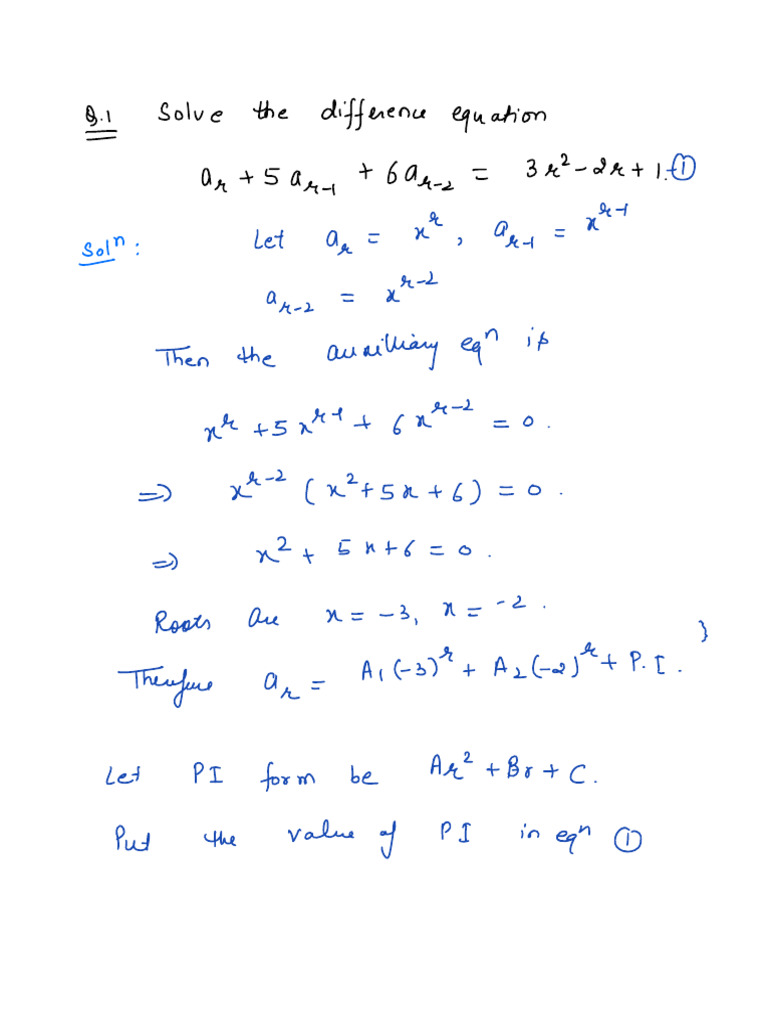 Q.1 Solve the difference equation
a_r + 5 a_{r-1} + 6 a_{r-2} = 3r² - 2r + 1. -①
Solⁿ: Let a_r = x^r, a_{r-1} = x^{r-1}
a_{r-2} = x^{r-2}
Then the auxilliary eqⁿ is
x^r + 5 x^{r-1} + 6 x^{r-2} = 0.
⇒ x^{r-2} (x² + 5x + 6) = 0.
⇒ x² + 5x + 6 = 0.
Roots are x = -3, x = -2.
Therefore a_r = A₁(-3)^r + A₂(-2)^r + P.I. }
Let PI form be Ar² + Br + C.
Put the value of PI in eqⁿ ①